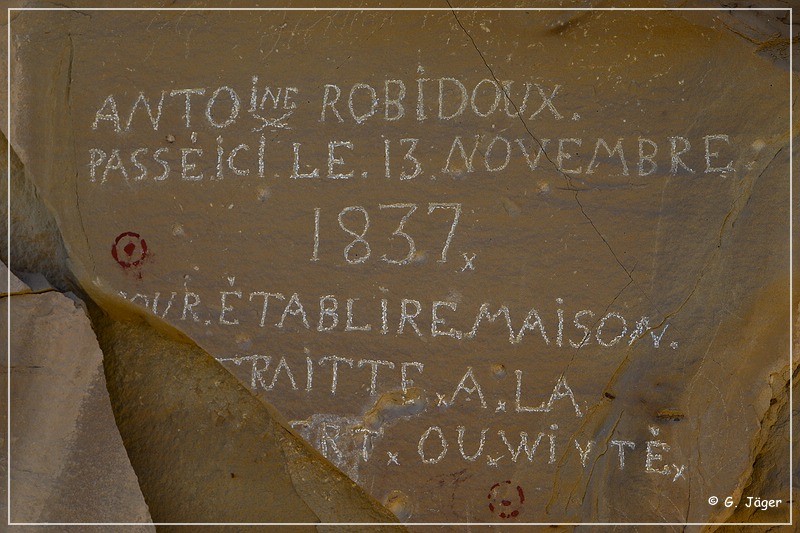 ANTOINE ROBIDOUX.
PASSÉ.ICI.LE.13.NOVEMBRE.
1837.
OUR.ÉTABLIRE MAISON.
TRAITTE.A.LA
RT.OU.WiYTÉ.
© G. Jäger